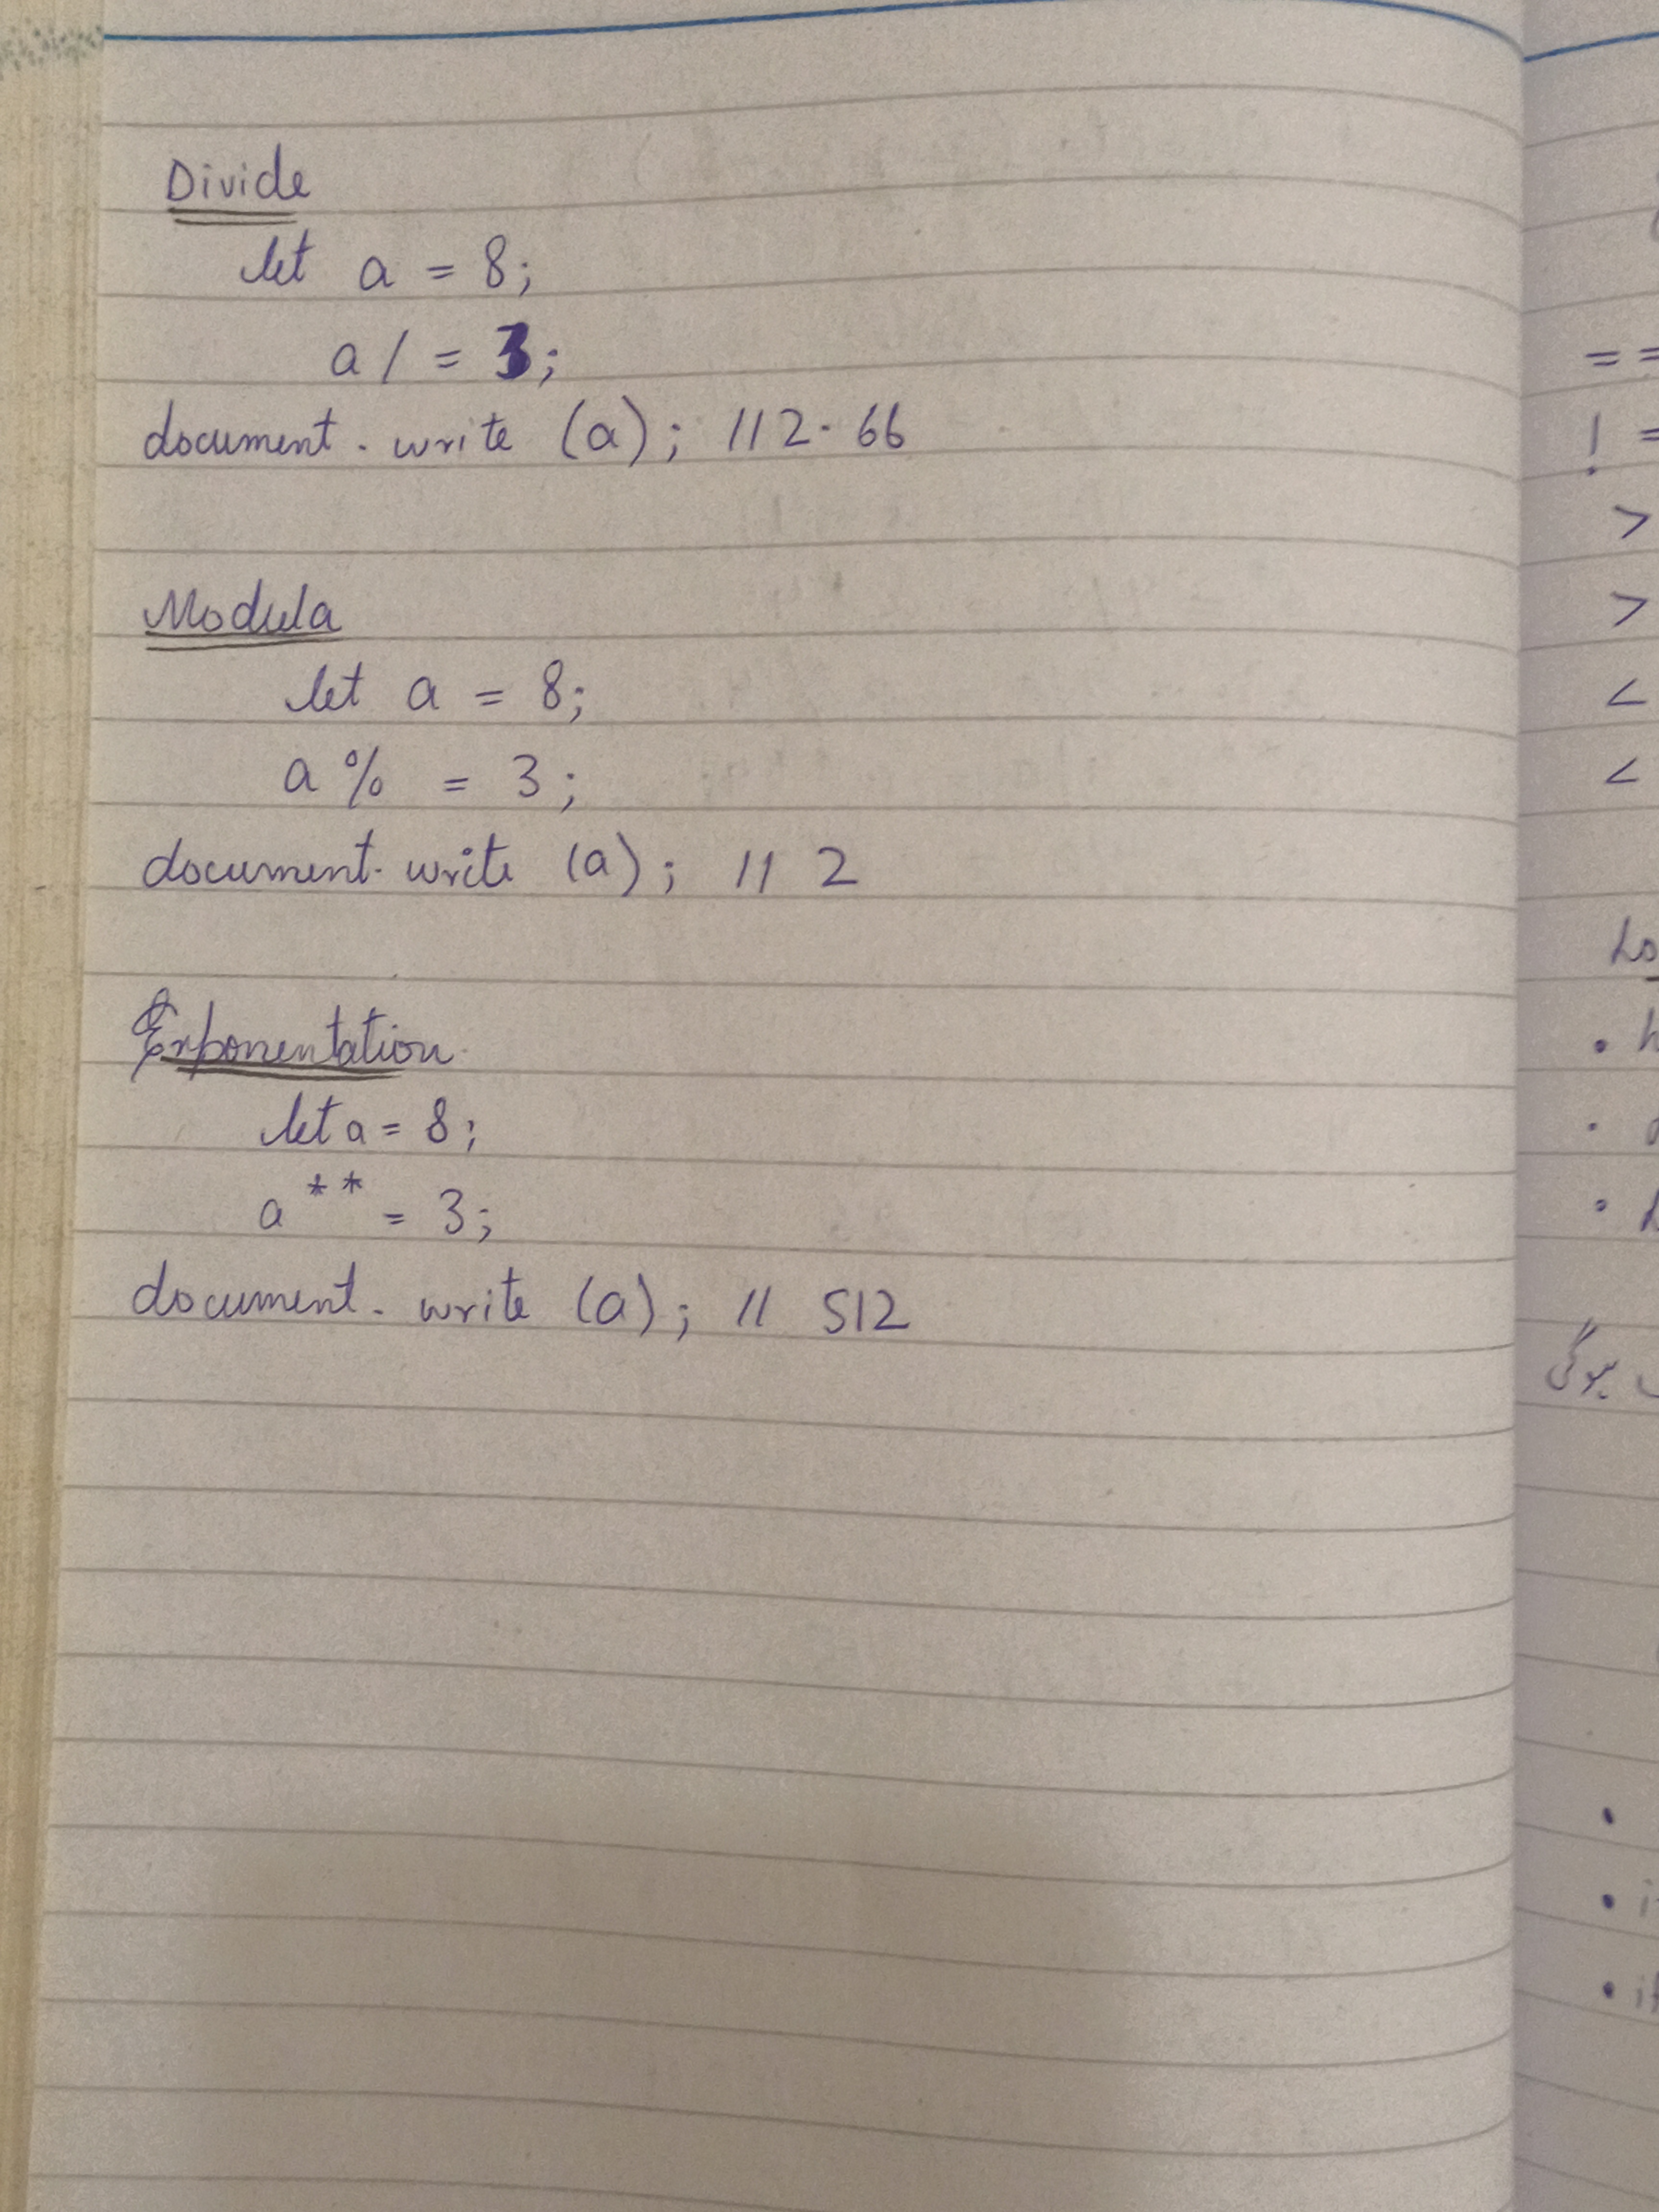 Divide
let a = 8;
a / = 3;
document. write (a); // 2.66
Modula
let a = 8;
a % = 3;
document. write (a); // 2
Exponentation
let a = 8;
a ** = 3;
document. write (a); // 512
==
! =
>
>
<
<
ہوگی